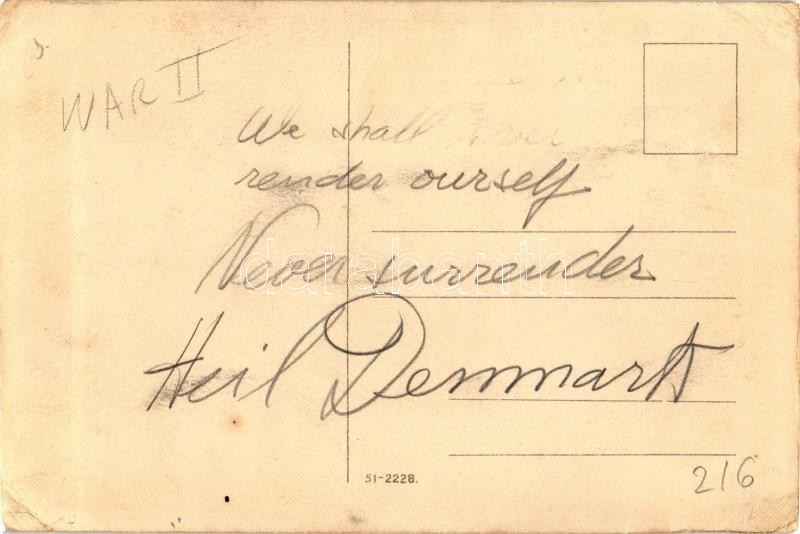 WAR II
We shall never
render ourself
Never surrender
Heil Denmark
51-2228.
216